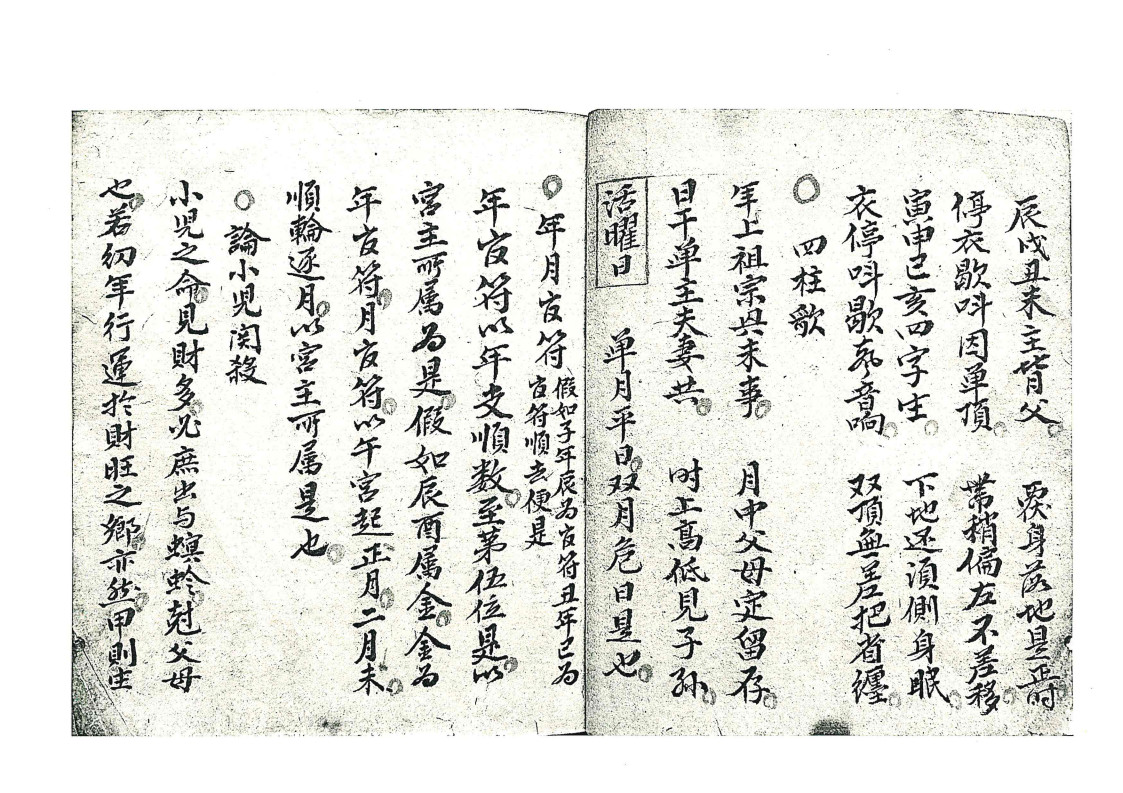 辰戌丑未主背父 覆身落地是正時
停衣歇呌因单頂 带稍偏左不差移
寅申巳亥四字生 下地还須側身眠
衣停呌歇氣音响 双頂無差把者纏
四柱歌
年上祖宗興未事 月中父母定留存
日干单主夫妻共 时上髙低見子孙
活曜日 单月平日双月危日是也
年月官符 假如子年辰為官符丑年巳為
官符順去便是
年官符以年支順数至第伍位是以
宮主所属為是假如辰酉属金金為
年官符月官符以午宮起正月二月未
順輪逐月以宮主所属是也
論小児関殺
小児之命見財多必庶出与螟蛉尅父母
也若幼年行運於財旺之鄉亦然甲則生